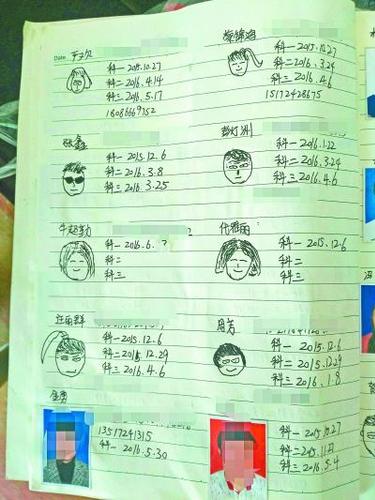 Date
科一 2015.10.27
科二 2016.4.14
科三 2016.5.17
18086669352
科一 2015.10.27
科二 2016.3.24
科三 2016.4.6
15172428675
张鑫
科一 2015.12.6
科二 2016.3.8
科三 2016.3.25
彭灯洲
科一 2016.1.22
科二 2016.3.24
科三 2016.4.6
科一 2016.6.?
科二
科三
代雅雨
科一 2015.12.6
科二
科三
汪丽群
科一 2015.12.6
科二 2015.12.29
科三 2016.4.6
周芳
科一 2015.12.6
科二 2015.12.29
科三 2016.1.8
13517241315
科一 2016.5.30
科一 2015.10.27
科二
科三 2016.5.4